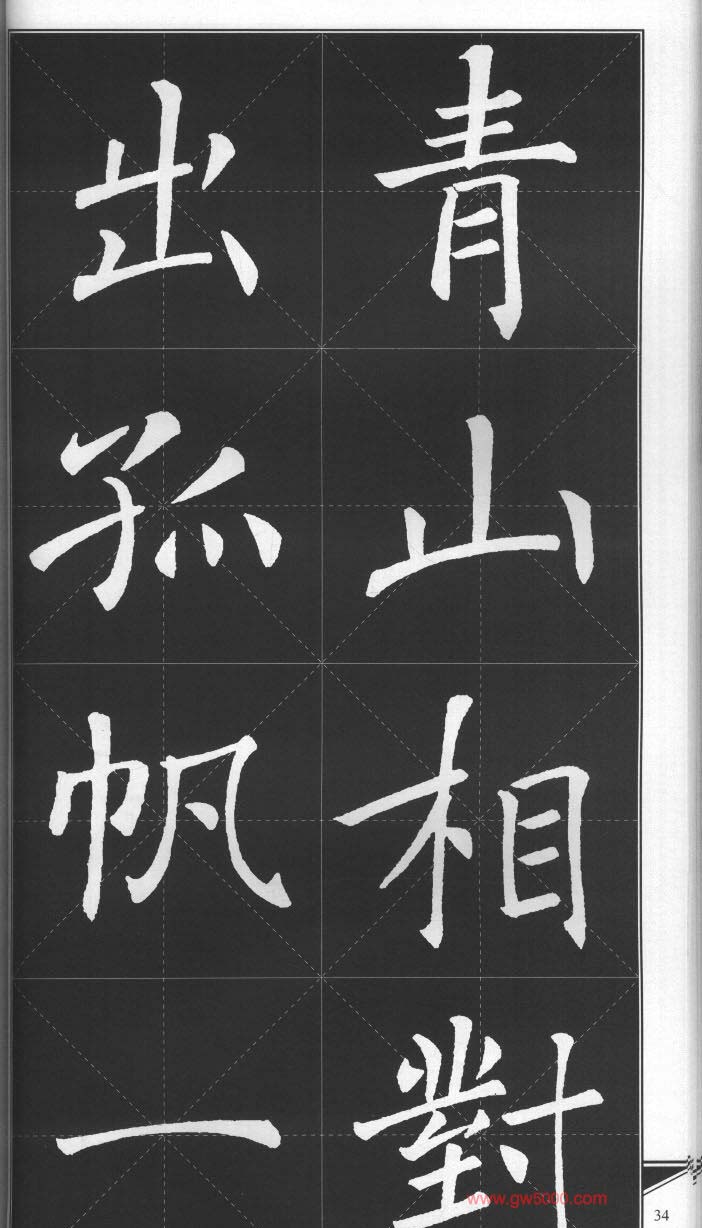 青山相對
出孤帆一
www.gw5000.com
34